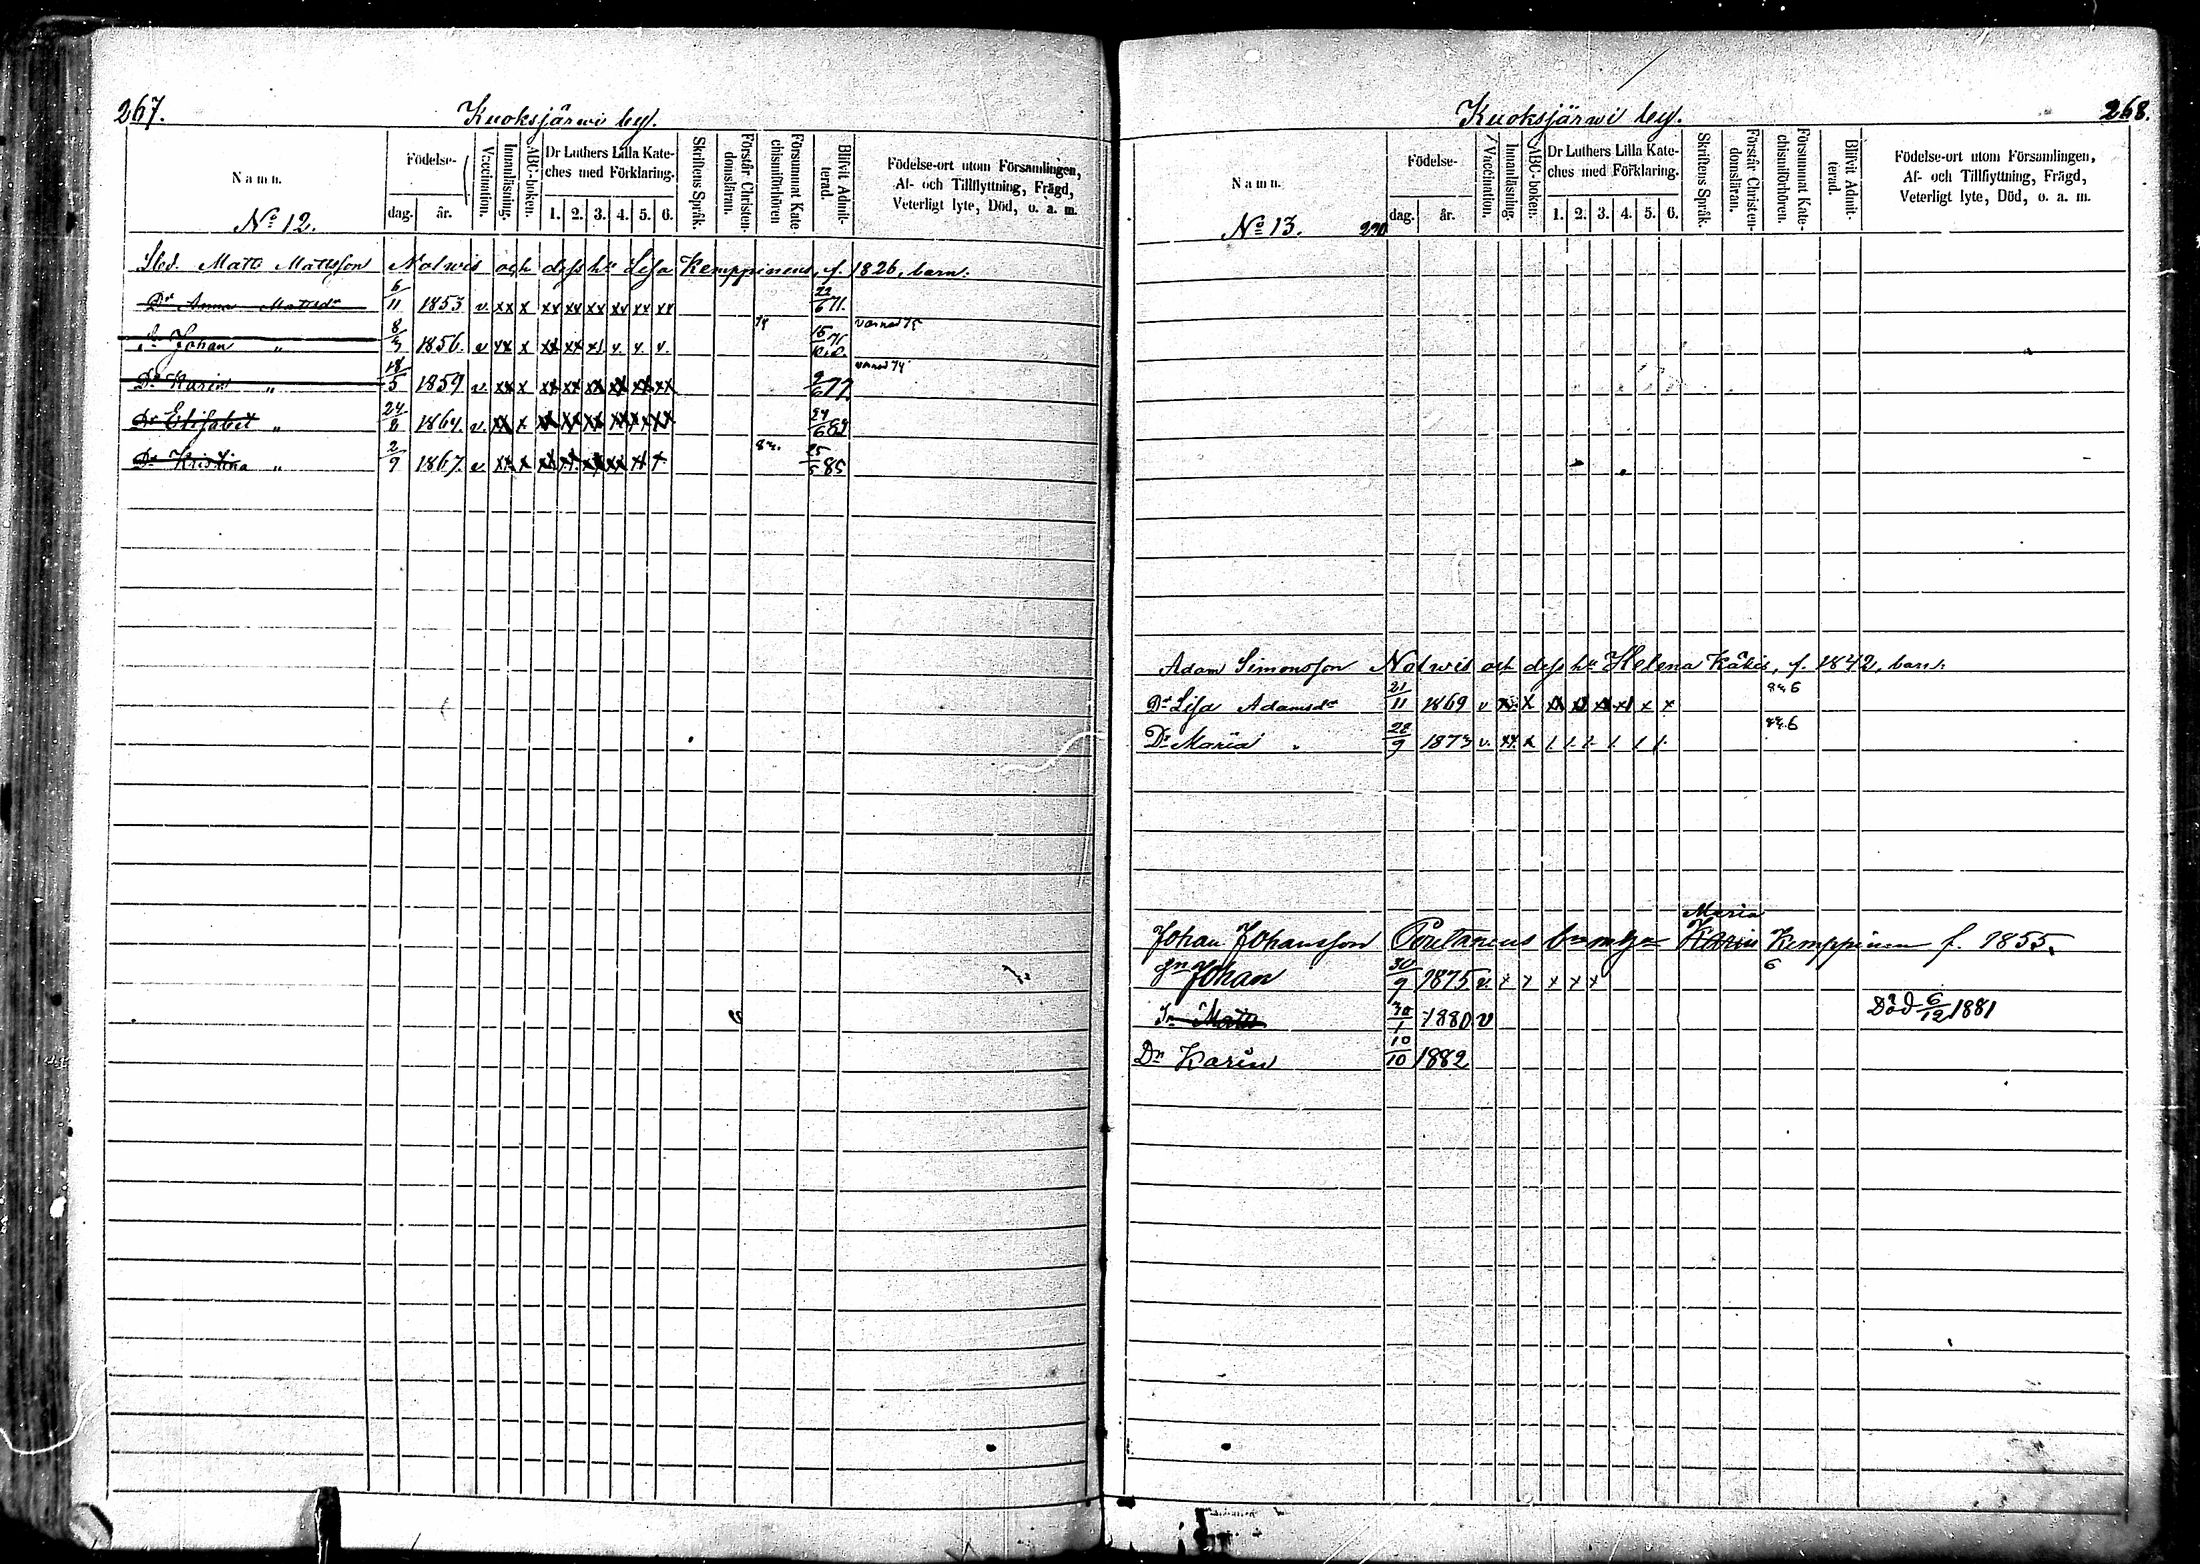 267.
Kuoksjärwi by.
Namn.
No 12.
Födelse-
dag. år.
Vaccination.
Innanläsning.
ABC-boken.
Dr Luthers Lilla Kate-
ches med Förklaring.
1. 2. 3. 4. 5. 6.
Skriftens Språk.
Förstår Christen-
domsläran.
Försummat Kate-
chismiförhören
Blifvit Admit-
terad.
Födelse-ort utom Församlingen,
Af- och Tillflyttning, Frägd,
Veterligt lyte, Död, o. a. m.
Matts Mattsson Nalwis och dess hu Lisa Kemppinens, f. 1826, barn.
Dr Anna Mattsdr 6/11 1853 v. xx x xx xx xx xx xx xx 22/6 71.
Sn Johan " 8/3 1856. v xx x xx xx x1 v. v. v. 75 15/10 76 varnad 75
Dr Karin " 18/5 1859 v. xx x xx xx xx xx xx xx 9/6 77 varnad 74
Dr Elisabet " 24/6 1864. v. xx x xx xx xx xx xx xx 24/6 82
Dr Kristina " 2/9 1867. v xx x xx xx xx xx x x 25/5 85
268.
Kuoksjärwi by.
Namn.
No 13. 270
Födelse-
dag. år.
Vaccination.
Innanläsning.
ABC-boken.
Dr Luthers Lilla Kate-
ches med Förklaring.
1. 2. 3. 4. 5. 6.
Skriftens Språk.
Förstår Christen-
domsläran.
Försummat Kate-
chismiförhören.
Blifvit Admit-
terad.
Födelse-ort utom Församlingen,
Af- och Tillflyttning, Frägd,
Veterligt lyte, Död, o. a. m.
Adam Simonsson Nalwis och dess hu Helena Käkis, f. 1842, barn.
Dr Lisa Adamsdr 21/11 1869 v xx x xx xx xx x1 x x
Dr Maria " 28/9 1873 v. xx. x 1. 1. 1. 1. 1. 1.
Maria
Johan Johansson Karin Kemppinen f. 1855.
Sn Johan 30/9 1875 v. x x x x x 6
Sn Matts 30/1 1880 v Död 6/12 1881
Dr Karin 10/10 1882